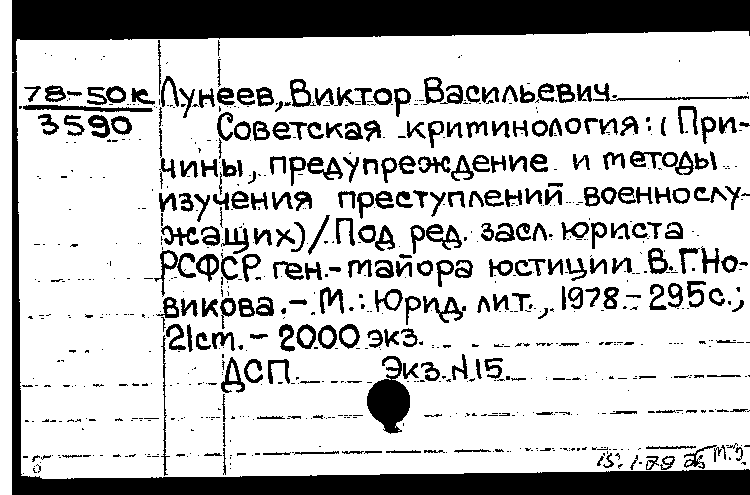 78-50к Лунеев, Виктор Васильевич.
3590 Советская криминология: (При-
чины, предупреждение и методы
изучения преступлений военнослу-
жащих) / Под ред. засл. юриста
РСФСР ген.-майора юстиции В.Г.Но-
викова. - М.: Юрид. лит., 1978. - 295с.;
21см. - 2000 экз.
ДСП. Экз.N15.
15.1-79 М.Э.